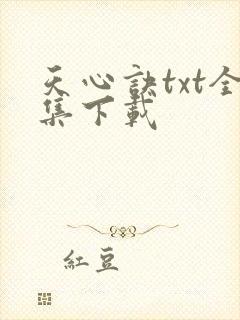 天心訣txt全
集下載
紅豆